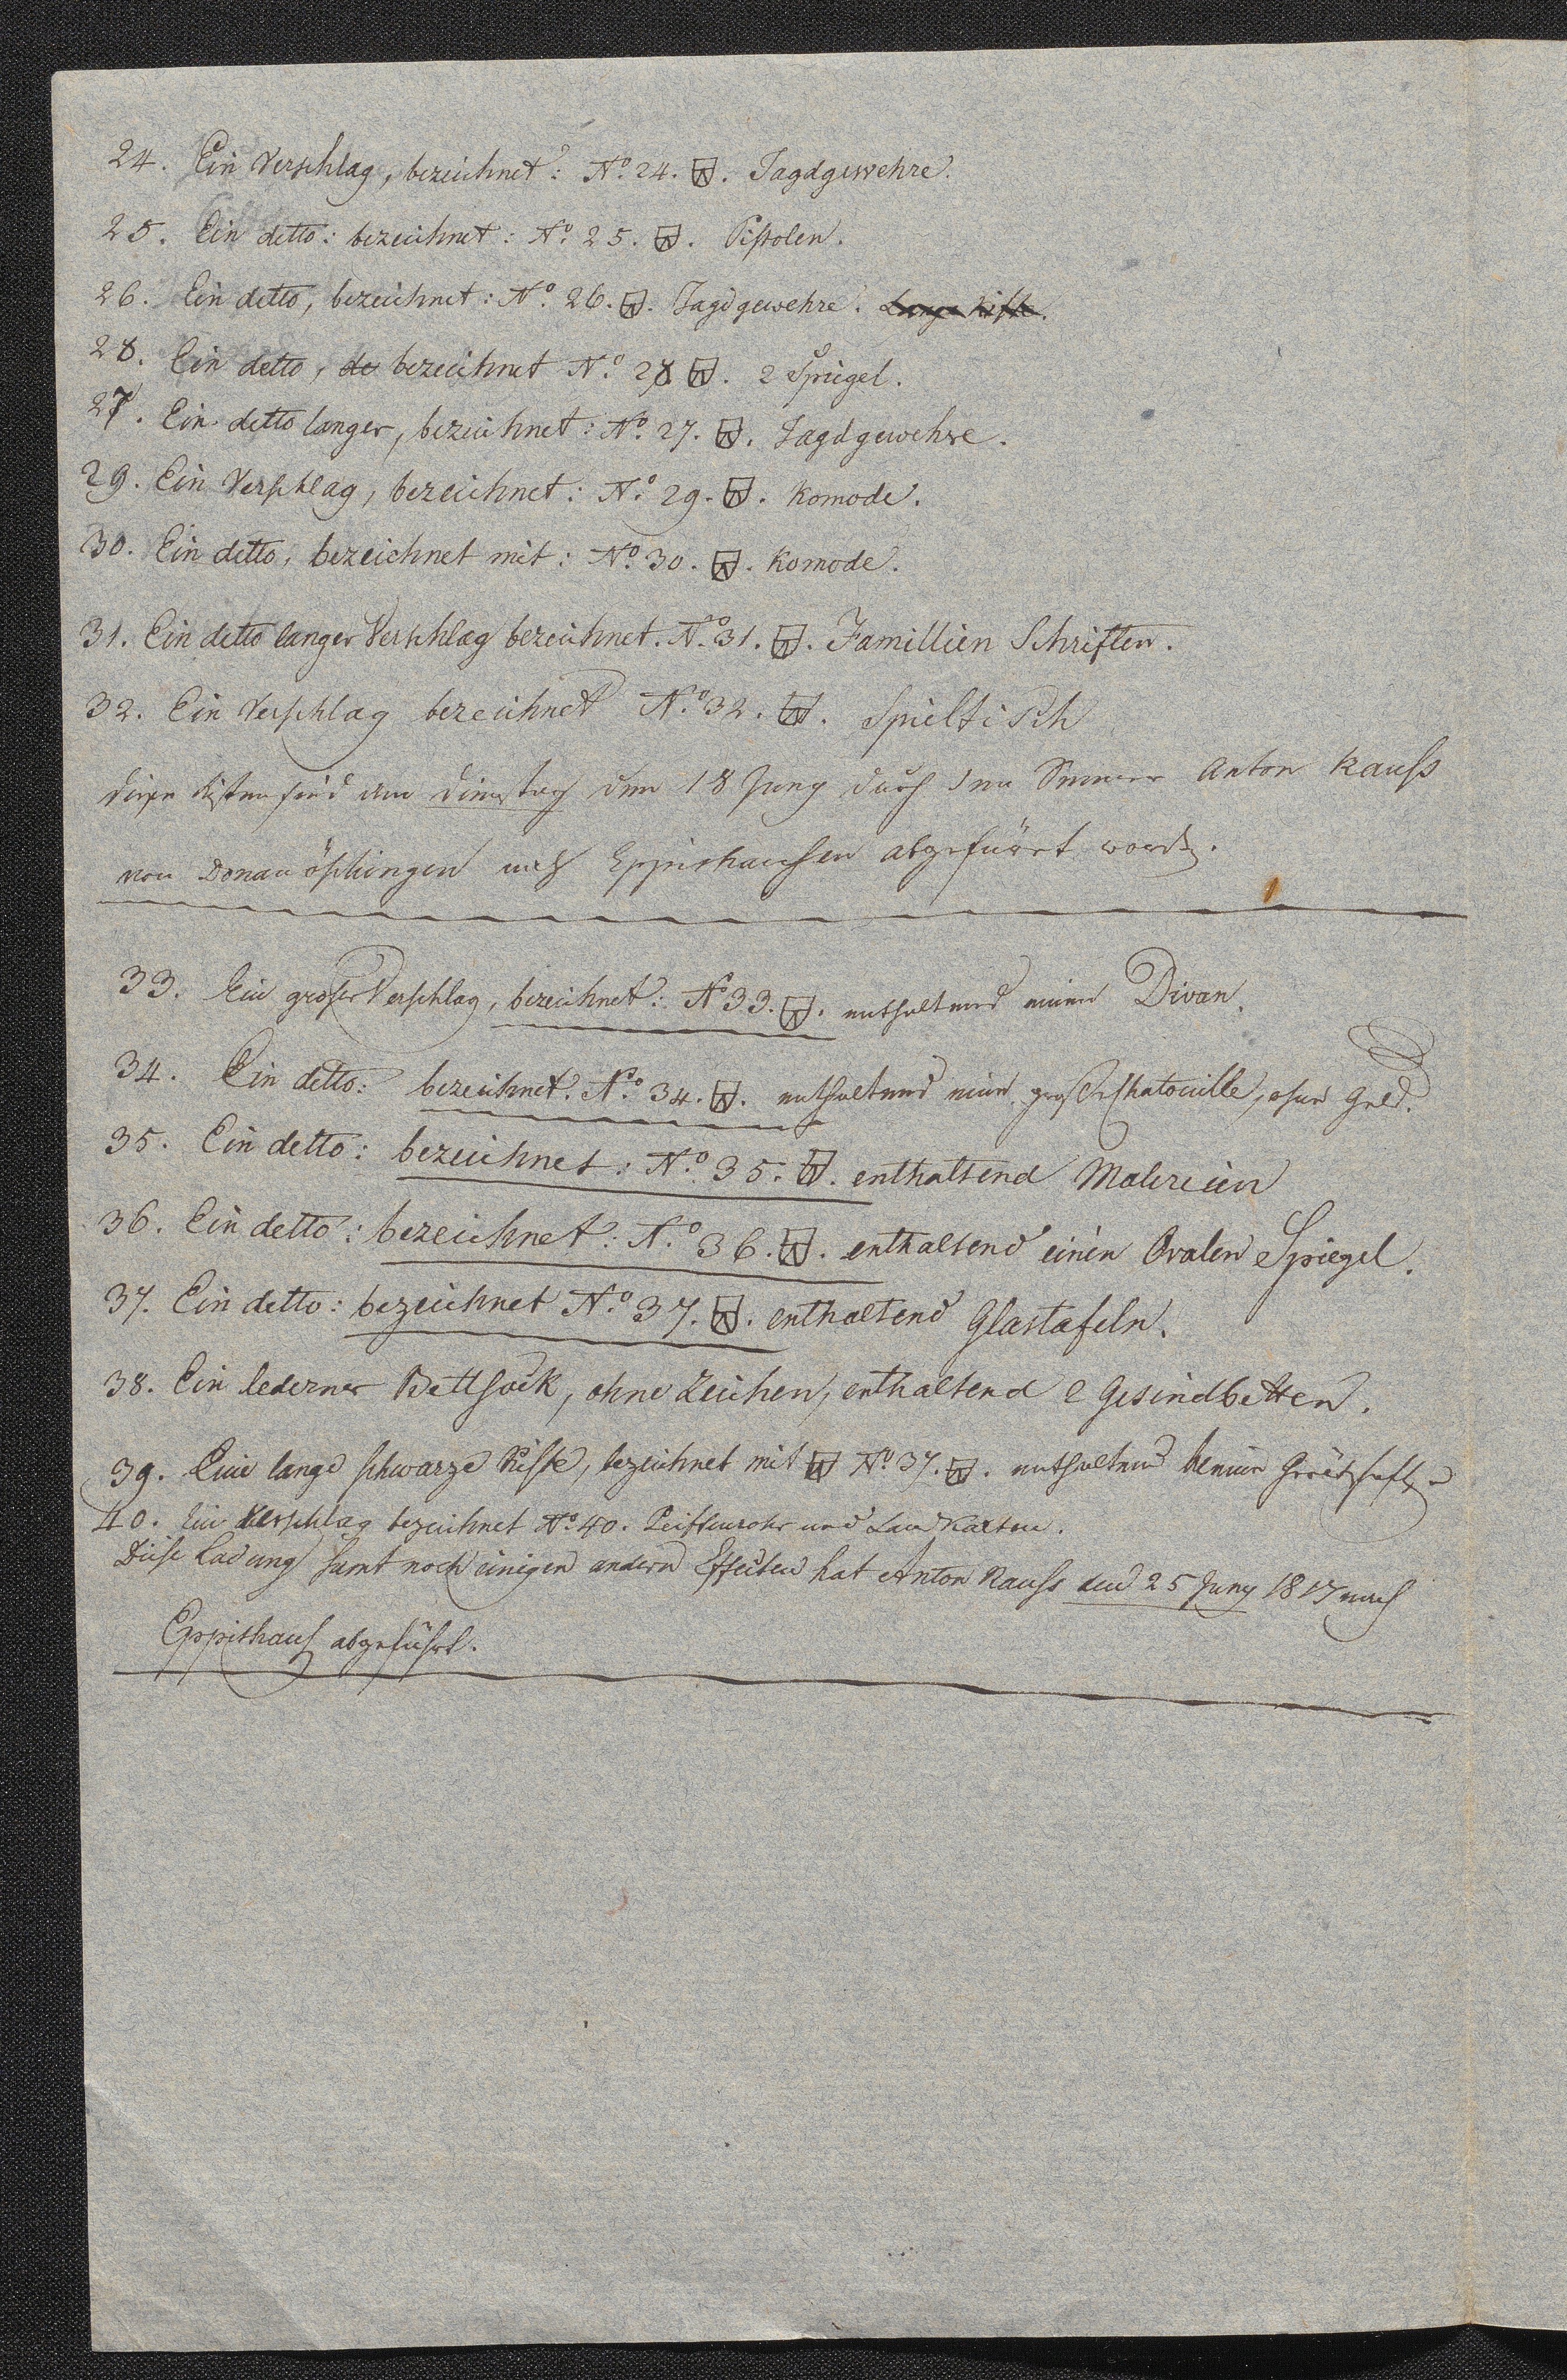 24. Ein Verschlag, bezeichnet: No. 24. Jagdgewehre.
25. Ein detto: bezeichnet: No. 25. Pistolen.
26. Ein detto, bezeichnet: No. 26. Jagdgewehre. Lange Kiste.
28. Ein detto, de bezeichnet No. 28. 2 Spiegel.
27. Ein detto langer, bezeichnet: No. 27. Jagdgewehre.
29. Ein Verschlag, bezeichnet: No. 29. Komode.
30. Ein detto, bezeichnet mit: No. 30. Komode.
31. Ein detto langer Verschlag bezeichnet. No. 31. Famillien Schriften.
32. Ein Verschlag bezeichnet No. 32. Spieltisch
diese Kisten sind am Dienstag den 18 Juny durch den Anton Kauss
von Donauöschingen nach Eppishausen abgeführt word.
33. Ein großer Verschlag, bezeichnet: No 33. enthaltend einen Divan.
34. Ein detto: bezeichnet. No. 34. enthaltend meine große Chatouille, ohne Geld.
35. Ein detto: bezeichnet: No. 35. enthaltend Malereien
36. Ein detto: bezeichnet: No. 36. enthaltend einen Ovalen Spiegel.
37. Ein detto: bezeichnet No. 37. enthaltend Glastafeln.
38. Ein lederner Bettsack, ohne Zeichen, enthaltend 2 Gesindbetten.
39. Eine lange schwarze Kiste, bezeichnet mit No. 37. enthaltend
40. Ein Verschlag bezeichnet No. 40. und Landkarten.
Diese Ladung samt noch einigen andern Effecten hat Anton Kauss den 25 Juny 1817 nach
Eppishaus abgeführt.